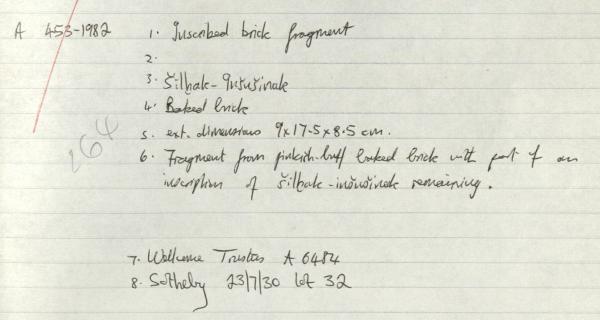 A 453-1982
1. Inscribed brick fragment
2.
3. Šilhak-Inšušinak
4. Baked brick
5. ext. dimensions 9x17.5x8.5 cm.
6. Fragment from pinkish-buff baked brick with part of an
inscription of Šilhak-inšušinak remaining.
264
7. Wellcome Trustees A 6484
8. Sotheby 23/7/30 lot 32